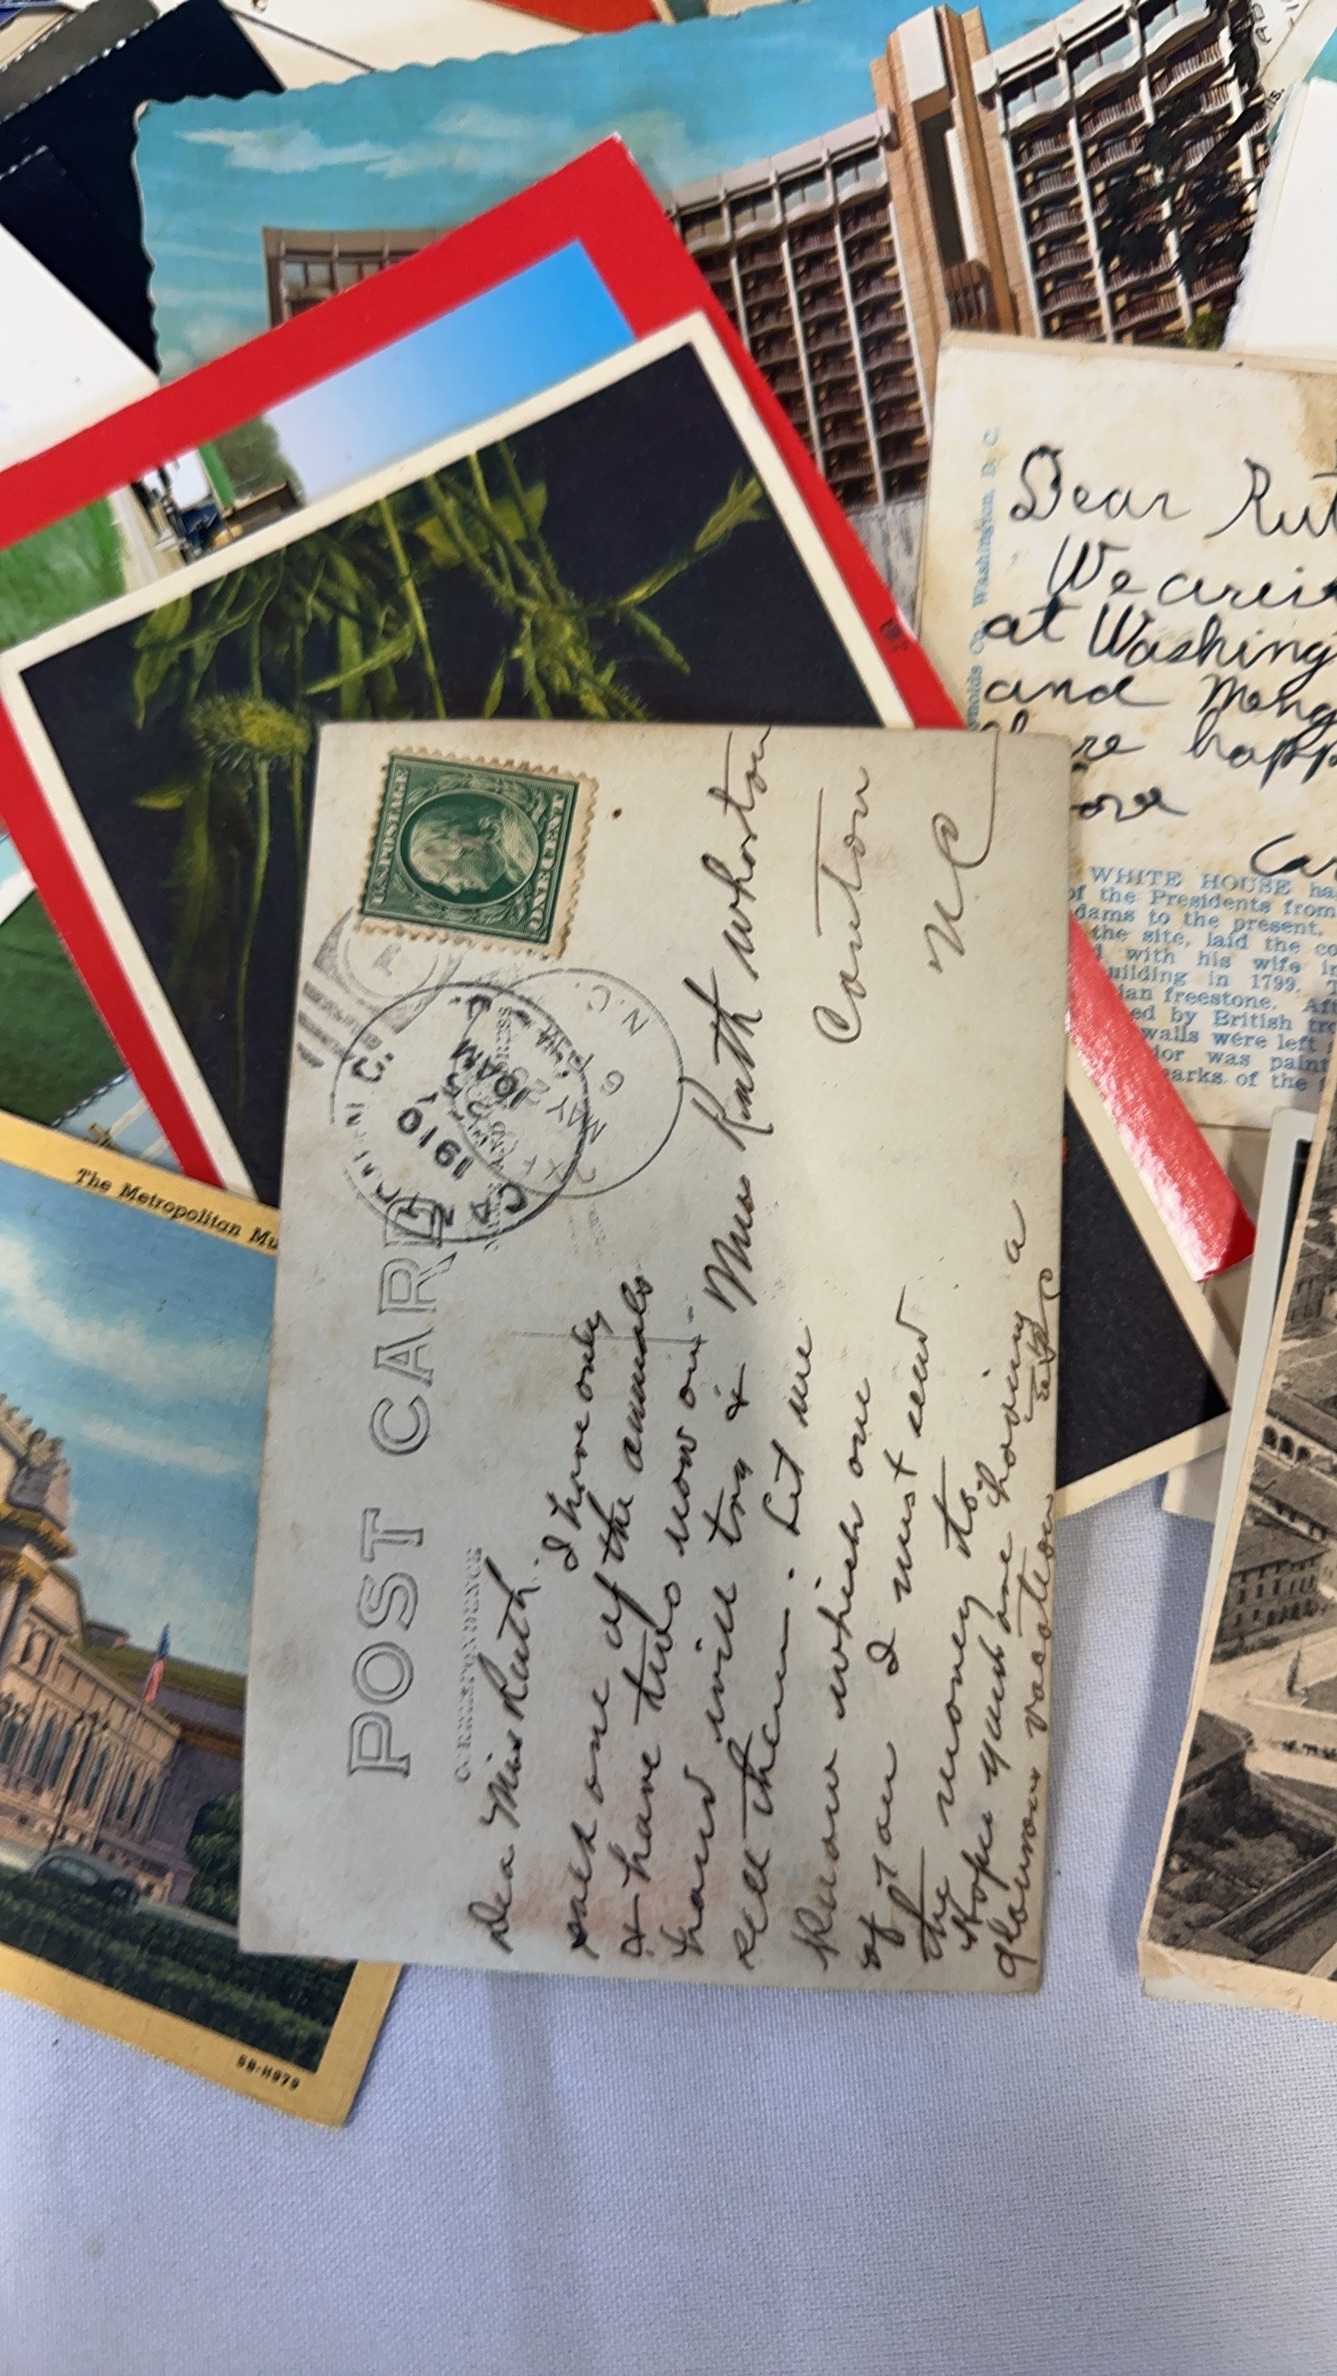 POST CARD
CORRESPONDENCE
Dea Miss Ruth.
I have only
sold one of the annuals
& have two now on
hand will try &
sell them. Let me
know which one
of you I must send
the money to.
Hope your are having a
glourous vacation
Miss Ruth Whorton
Canton
N C
U.S. POSTAGE
ONE CENT
1910
10 AM
MAY
6
N.C.
Dear Rut
We
at Washing
and
happ
ove
Car
Washington, D. C.
WHITE HOUSE ha
of the Presidents from
dams to the present.
the site, laid the co
with his wife in
uilding in 1799. T
ian freestone. Aft
ed by British tro
walls were left
ior was paint
arks of the
The Metropolitan Mu
5B-H979